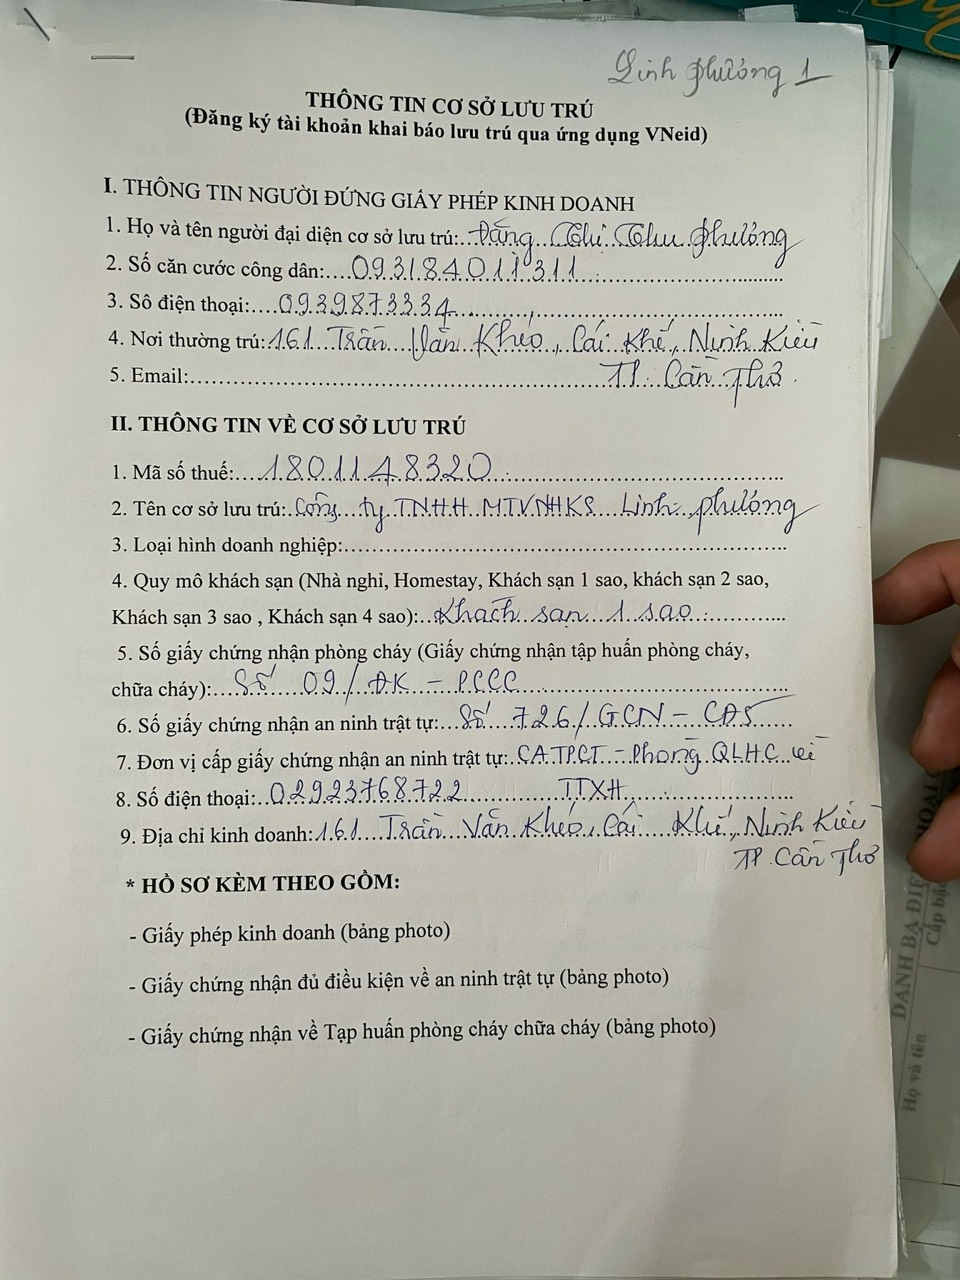 Linh Phương 1
THÔNG TIN CƠ SỞ LƯU TRÚ
(Đăng ký tài khoản khai báo lưu trú qua ứng dụng VNeid)
I. THÔNG TIN NGƯỜI ĐỨNG GIẤY PHÉP KINH DOANH
1. Họ và tên người đại diện cơ sở lưu trú:...Đặng Thị Thu Phương
2. Số căn cước công dân:....093184011311
3. Sô điện thoại:....0939873334
4. Nơi thường trú: 161 Trần Văn Khéo, Cái Khế, Ninh Kiều
TP. Cần Thơ.
5. Email:
II. THÔNG TIN VỀ CƠ SỞ LƯU TRÚ
1. Mã số thuế:....1801148320
2. Tên cơ sở lưu trú: Công ty TNHH MTV NHKS Linh Phương
3. Loại hình doanh nghiệp:
4. Quy mô khách sạn (Nhà nghỉ, Homestay, Khách sạn 1 sao, khách sạn 2 sao,
Khách sạn 3 sao , Khách sạn 4 sao):..Khách sạn 1 sao
5. Số giấy chứng nhận phòng cháy (Giấy chứng nhận tập huấn phòng cháy,
chữa cháy):....Số 09/ĐK - PCCC
6. Số giấy chứng nhận an ninh trật tự:...Số 726/GCN - CAS
7. Đơn vị cấp giấy chứng nhận an ninh trật tự:..CA.TPCT - Phòng QLHC về
TTXH
8. Số điện thoại:..02923768722
9. Địa chỉ kinh doanh: 161 Trần Văn Khéo, Cái Khế, Ninh Kiều
TP. Cần Thơ
* HỒ SƠ KÈM THEO GỒM:
- Giấy phép kinh doanh (bảng photo)
- Giấy chứng nhận đủ điều kiện về an ninh trật tự (bảng photo)
- Giấy chứng nhận về Tạp huấn phòng cháy chữa cháy (bảng photo)
DANH BẠ ĐIỆ
THOẠI
Cấp bậc
Họ và tên